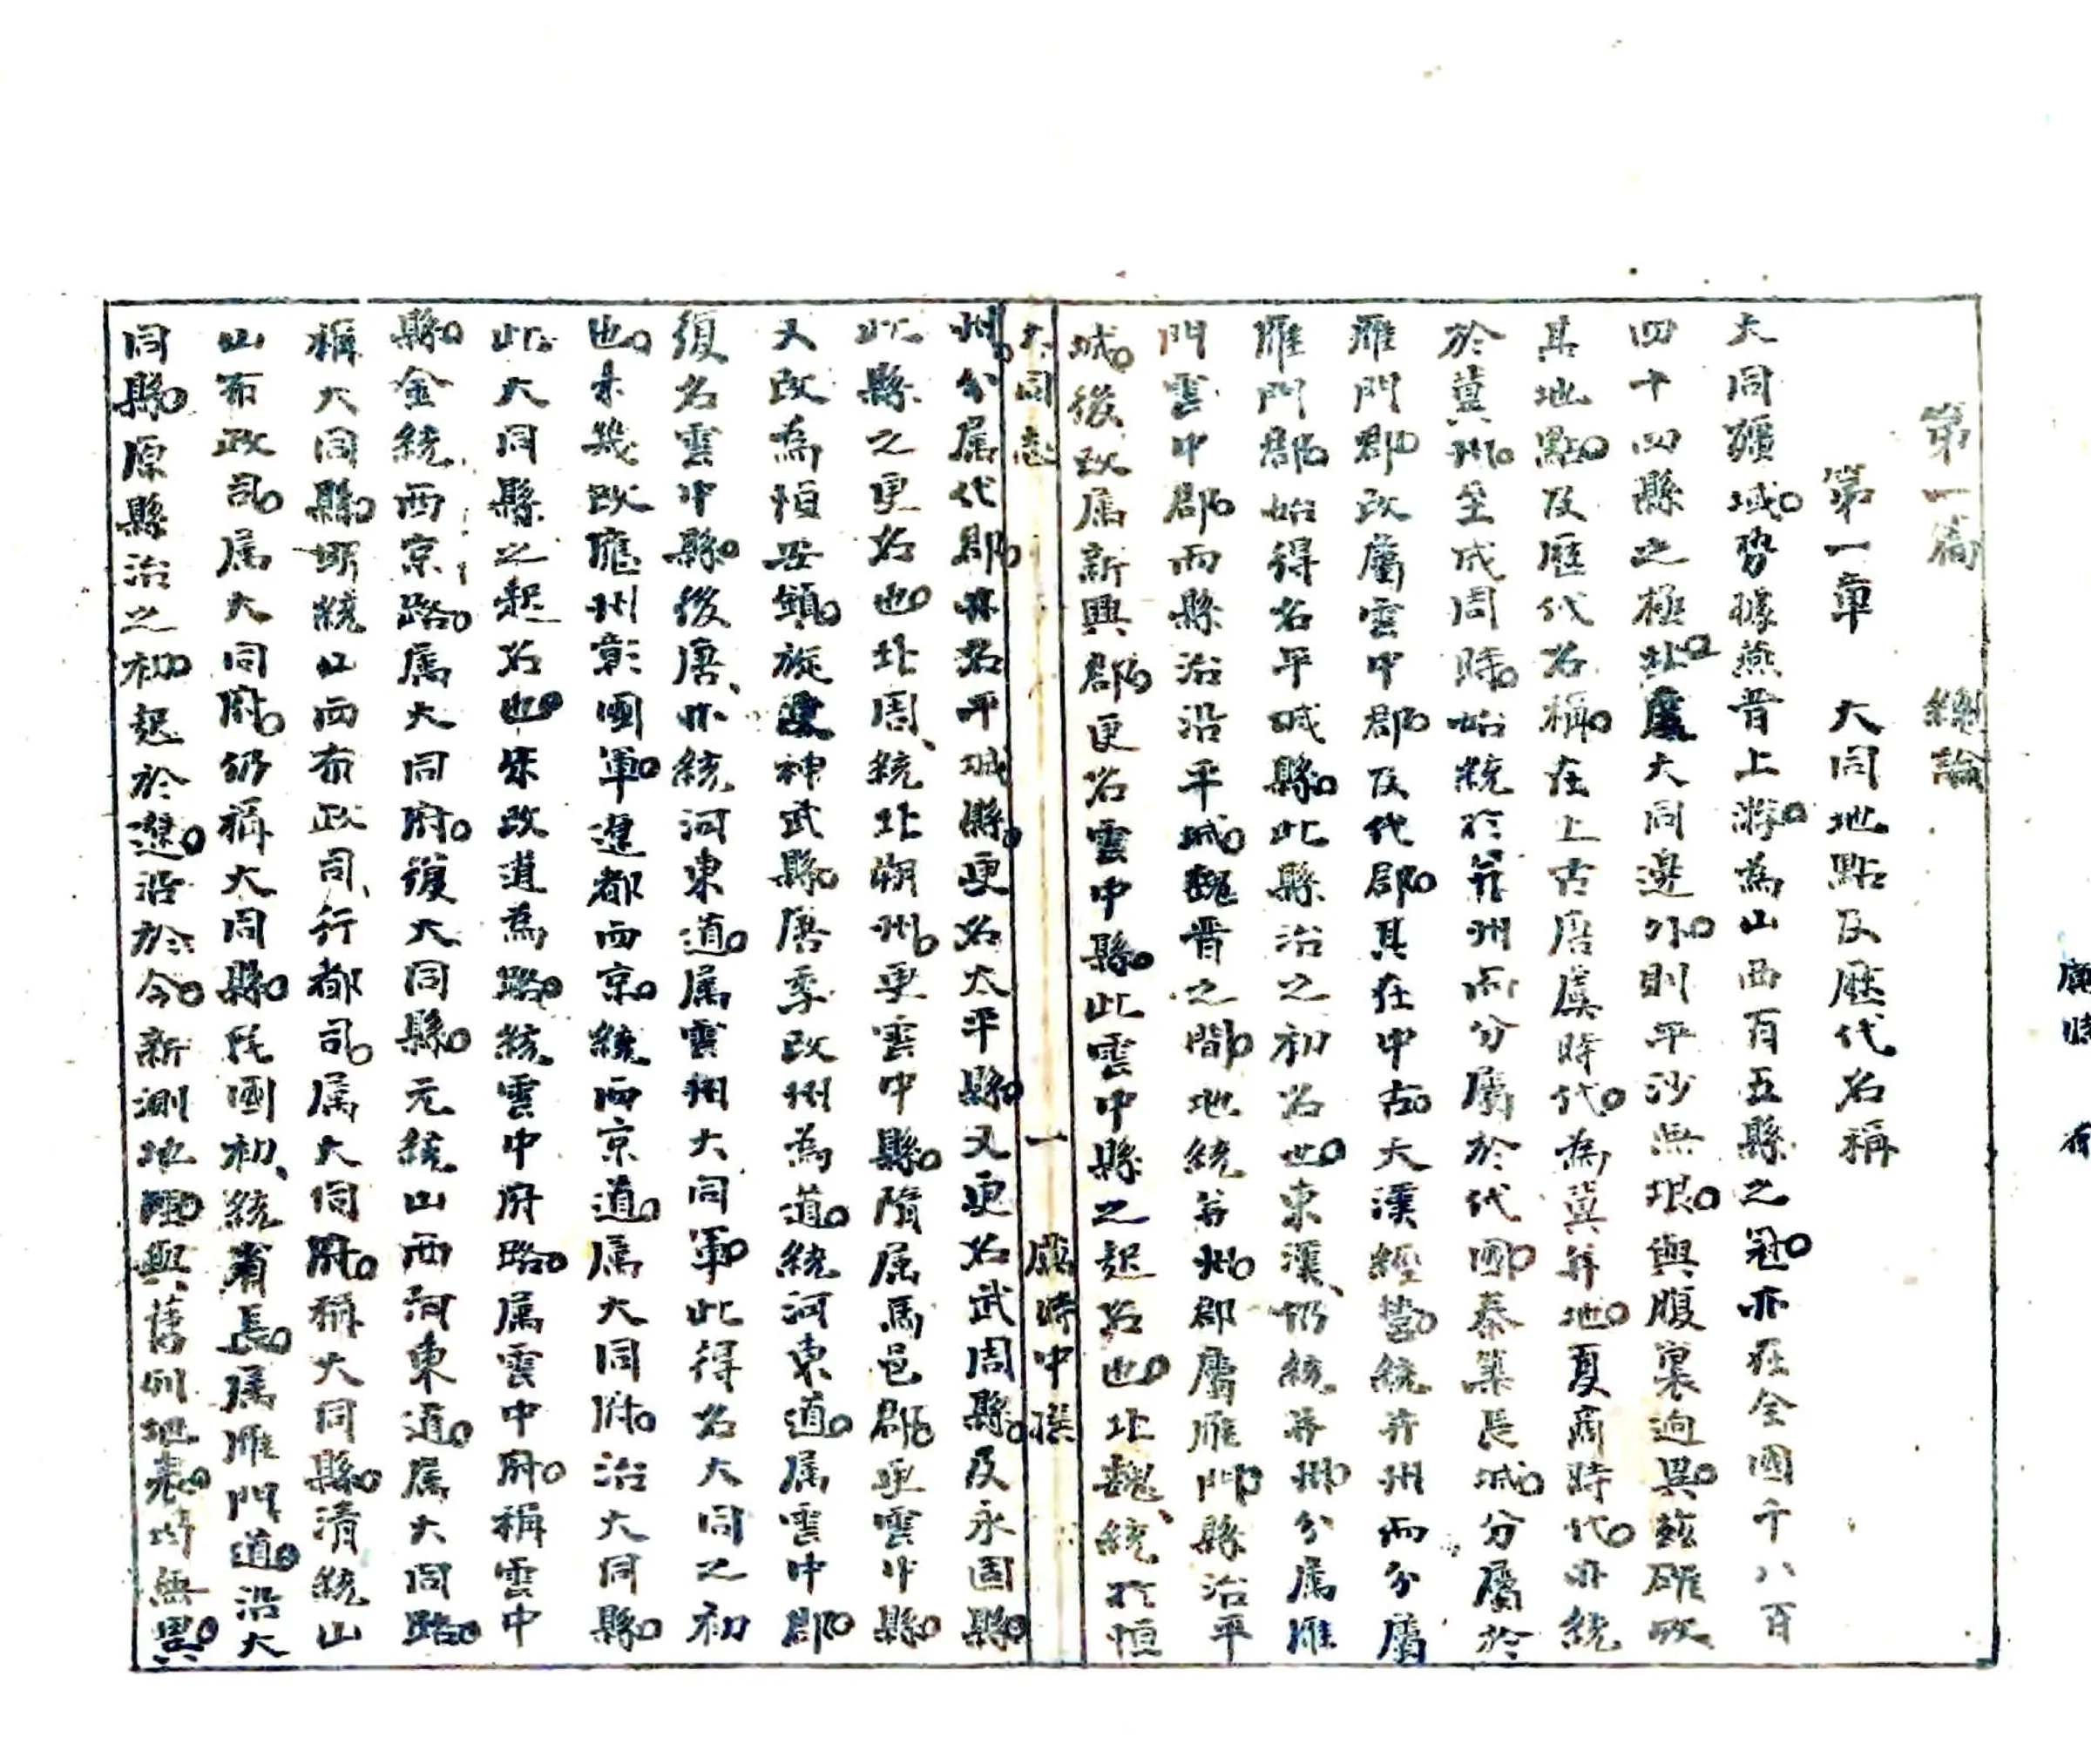 第一篇　總論
第一章　大同地點及歷代名稱
大同疆域。勢據燕晉上游。為山西百五縣之冠。亦在全國千八百
四十四縣之極北。大同邊外。則平沙無垠。與腹裏迥異。茲確攷
其地點。及歷代名稱。在上古唐虞時代。為冀并地。夏商時代。亦統
於冀州。至成周時。始統於并州而分屬於代國。秦築長城。分屬於
雁門郡。改屬雲中郡。及代郡。其在中古。大漢經營。統并州而分屬
雁門郡。始得名平城縣。此縣治之初名也。東漢、仍統并州。分属雁
門雲中郡。而縣治沿平城。魏晋之間。地統并州。郡屬雁門。縣治平
城。後改属新興郡。更名雲中縣。此雲中縣之起名也。北魏、統於恒
大同志　一　時中撰
州。分属代郡。亦名平城縣。更名太平縣。又更名武周縣。及永固縣。
此縣之更名也。北周、統北朔州。更雲中縣。隋属馬邑郡。亟雲中縣。
又改為恒安鎮。旋神武縣。唐季改州為道。統河東道。属雲中郡。
復名雲中縣。後唐、亦統河東道。属雲州大同軍。此得名大同之初
也。未幾改應州彰國軍。遼都西京。統西京道。属大同府。治大同縣。
此大同縣之起名也。宋改道為路。統雲中府路。属雲中府。稱雲中
縣。金統西京路。属大同府。復大同縣。元統山西河東道。属大同路。
稱大同縣。明統山西布政司、行都司。属大同府。稱大同縣。清統山
山布政司。属大同府。仍稱大同縣。民國初、統省長。属雁門道。沿大
同縣。原縣治之初。起於遼。沿於今。新測地圖。與舊列地表。均無異。